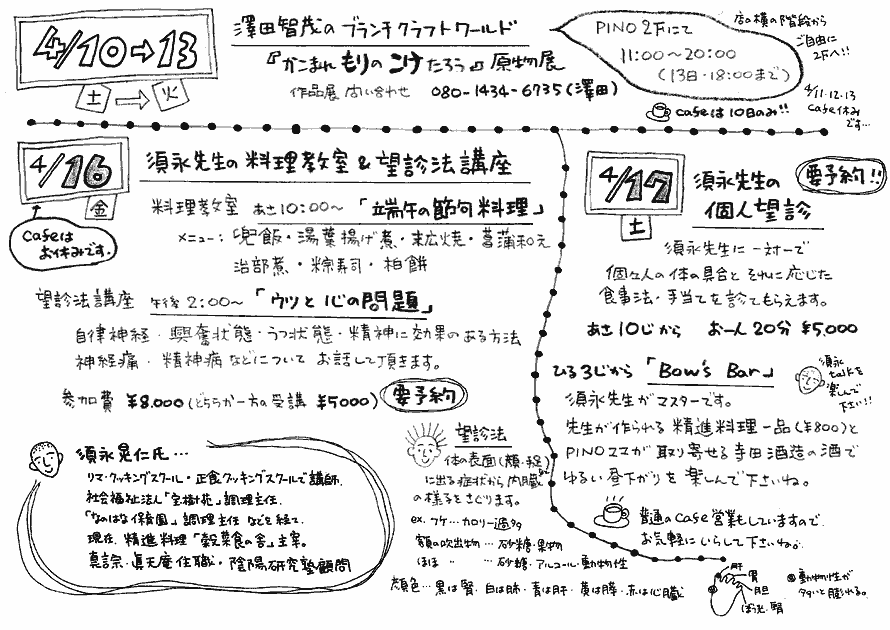 4/10→13
土→火
澤田智茂のブランチクラフトワールド
『かこまれ もりの こけ たろう』原物展
作品展 問い合わせ 080-1434-6735(澤田)
PINO 2Fにて
11:00〜20:00
(13日・18:00まで)
cafeは10日のみ!!
店の横の階段から
ご自由に
2Fへ!!
4/11.12.13
cafe休み
です…
4/16
金
cafeは
お休みです.
須永先生の料理教室&望診法講座
料理教室 あさ10:00〜「端午の節句料理」
メニュー:兜飯・湯葉揚げ煮・末広焼・菖蒲和え
治部煮・粽寿司・柏餅
望診法講座 午後2:00〜「ウツと心の問題」
自律神経・興奮状態・うつ状態・精神に効果のある方法
神経痛・精神病などについて お話して頂きます。
参加費 ¥8.000(どちらか一方の受講 ¥5000) 要予約
須永晃仁氏…
リマ・クッキングスクール・正食クッキングスクールで講師.
社会福祉法人「宝樹苑」調理主任.
「なのはな保育園」調理主任などを経て.
現在.精進料理「穀菜食の舎」主宰。
真言宗・眞天庵住職・陰陽研究塾顧問
望診法
体の表面(顔・程)
に出る症状から内臓
の様子をさぐります。
ex. フケ…カロリー過多
額の吹出物…砂糖・果物
ほほ 〃 …砂糖・アルコール・動物性
顔色…黒は腎・白は肺・青は肝・黄は脾・赤は心臓
4/17
土
須永先生の
個人望診
要予約!!
須永先生に一対一で
個々人の体の具合とそれに応じた
食事法・手当てを診てもらえます。
あさ10じから お一人20分 ¥5.000
ひる3じから「Bow's Bar」
須永
talkを
楽しんで
下さい!!
須永先生がマスターです。
先生が作られる精進料理一品(¥800)と
PINOママが取り寄せる寺田酒造の酒で
ゆるい昼下がりを楽しんで下さいね。
普通のcafe営業もしていますので
お気軽にいらして下さいね。
肝
胃
胆
ぼうこう・腎
動物性が
多いと膨れる。